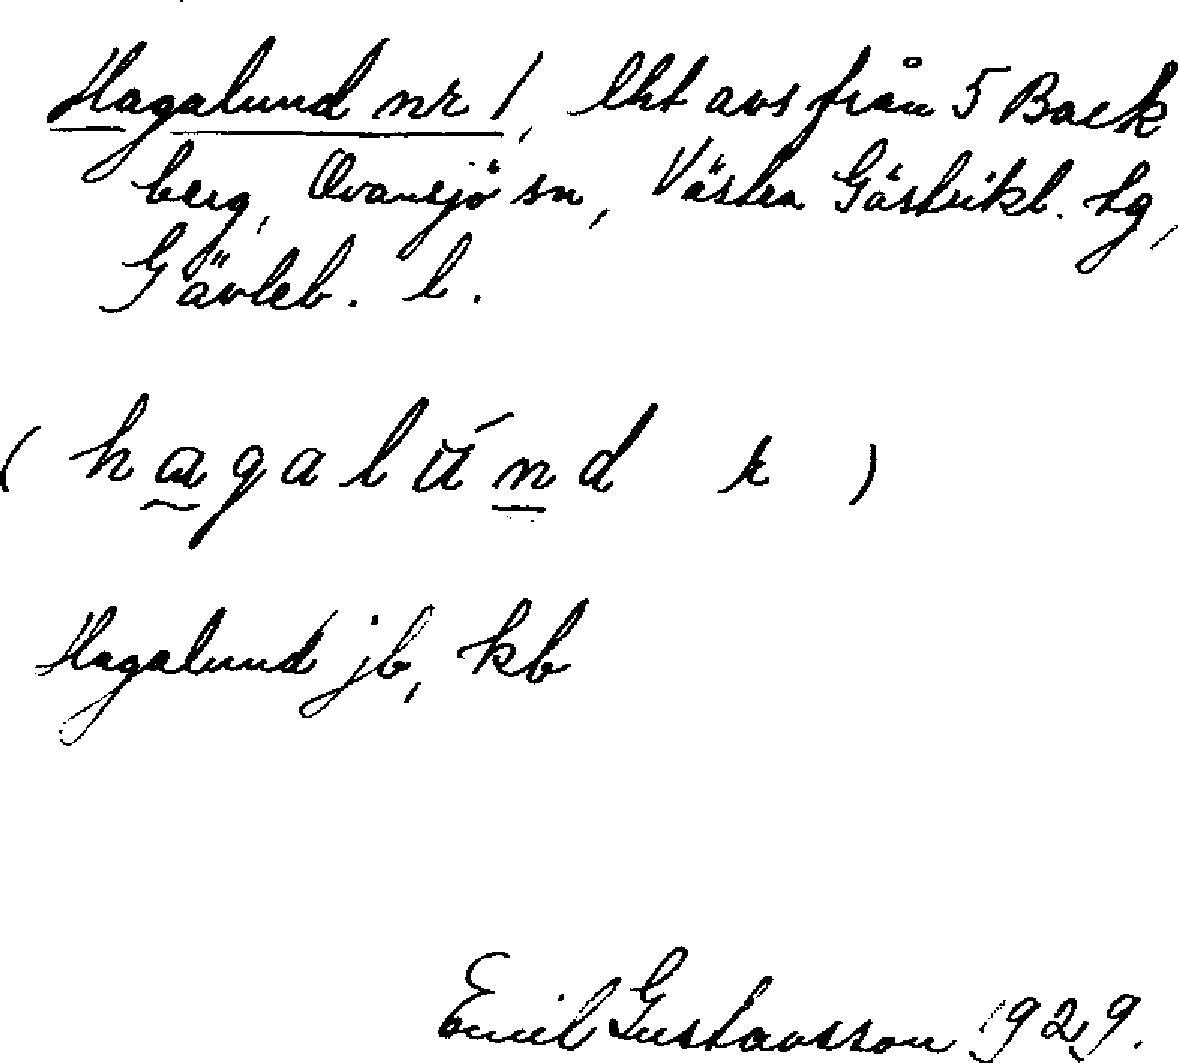 Hagalund nr 1, lht avs från 5 Back
berg, Ovansjö sn, Västra Gästrikl. tg,
Gävleb. l.
( hagalu̇́nd k )
Hagalund jb, kb
Emil Gustavsson 1929.